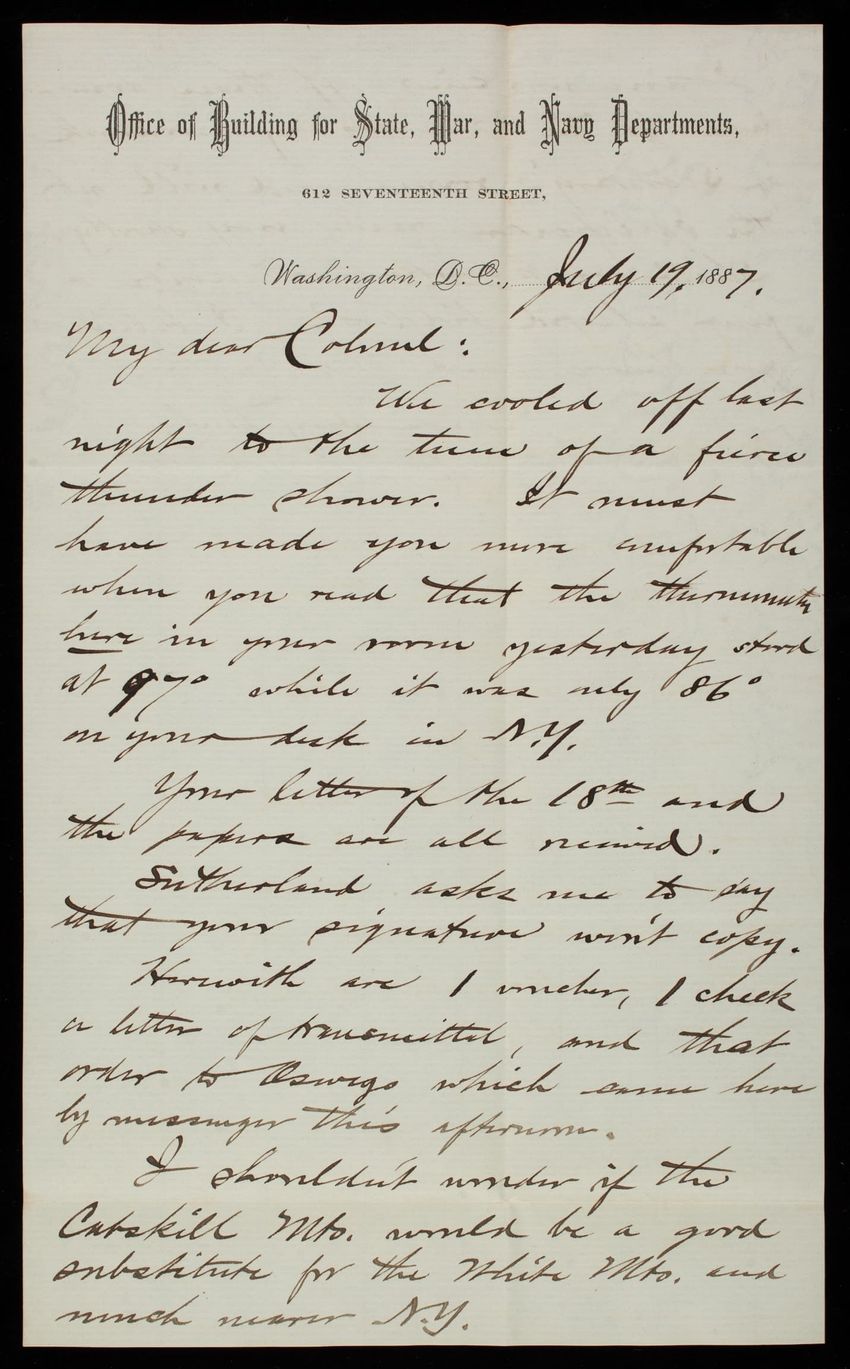 Office of Building for State, War, and Navy Departments,
612 SEVENTEENTH STREET,
Washington, D. C., July 19, 1887.
My dear Colonel:
We cooled off last
night to the tune of a fierce
thunder shower. It must
have made you more comfortable
when you read that the thermometer
here in your room yesterday stood
at 97° while it was only 86°
on your desk in N.Y.
Your letter of the 18th and
the papers are all received.
Sutherland asks me to say
that your signature won't copy.
Herewith are 1 voucher, 1 check
a letter of transmittal, and that
order to Oswego which came here
by messenger this afternoon.
I shouldn't wonder if the
Catskill Mts. would be a good
substitute for the White Mts. and
much nearer N.Y.